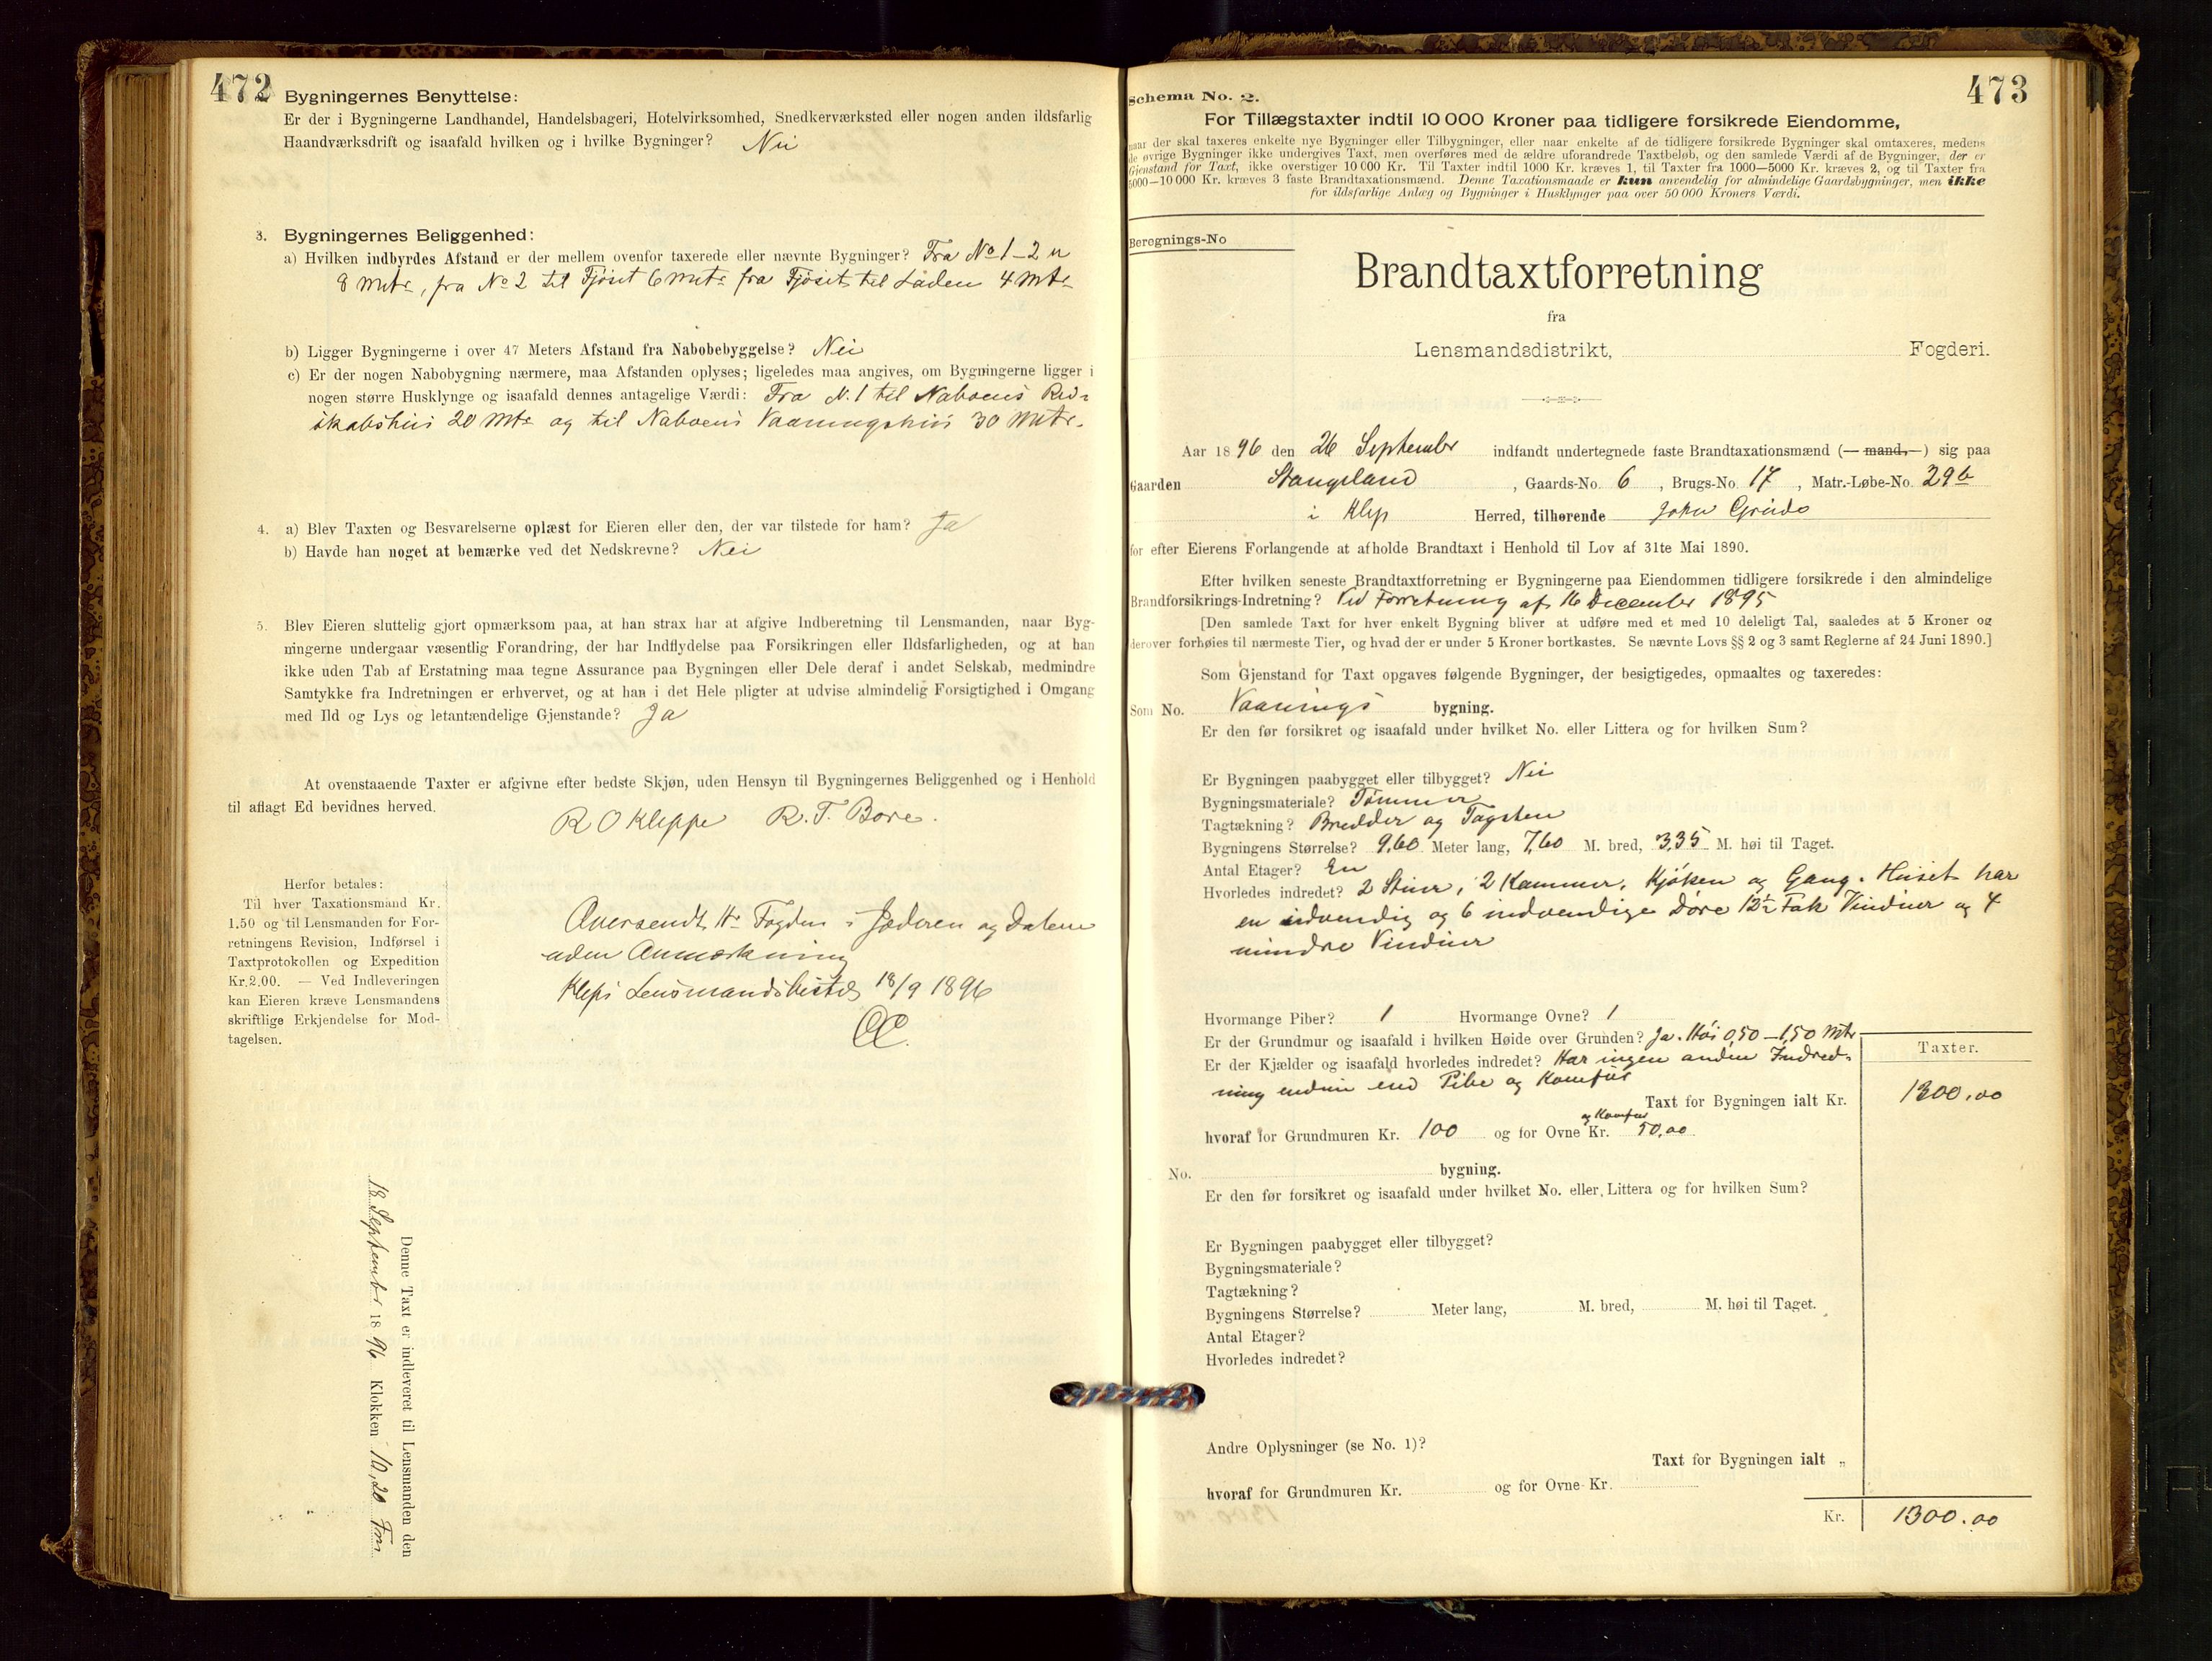 472
Bygningernes Benyttelse:
Er der i Bygningerne Landhandel, Handelsbageri, Hotelvirksomhed, Snedkerværksted eller nogen anden ildsfarlig
Haandværksdrift og isaafald hvilken og i hvilke Bygninger? Nei
3. Bygningernes Beliggenhed:
a) Hvilken indbyrdes Afstand er der mellem ovenfor taxerede eller nævnte Bygninger? Fra No 1–2 u
8 Mtr, fra No 2 til Fjöset 6 Mtr fra Fjöset til Laden 4 Mtr
b) Ligger Bygningerne i over 47 Meters Afstand fra Nabobebyggelse? Nei
c) Er der nogen Nabobygning nærmere, maa Afstanden oplyses; ligeledes maa angives, om Bygningerne ligger i
nogen større Husklynge og isaafald dennes antagelige Værdi: Fra N. 1 til Naboens Red-
skabshus 20 Mtr og til Naboens Vaaningshus 30 Mtr.
4. a) Blev Taxten og Besvarelserne oplæst for Eieren eller den, der var tilstede for ham? Ja
b) Havde han noget at bemærke ved det Nedskrevne? Nei
5. Blev Eieren sluttelig gjort opmærksom paa, at han strax har at afgive Indberetning til Lensmanden, naar Byg-
ningerne undergaar væsentlig Forandring, der har Indflydelse paa Forsikringen eller Ildsfarligheden, og at han
ikke uden Tab af Erstatning maa tegne Assurance paa Bygningen eller Dele deraf i andet Selskab, medmindre
Samtykke fra Indretningen er erhvervet, og at han i det Hele pligter at udvise almindelig Forsigtighed i Omgang
med Ild og Lys og letantændelige Gjenstande? Ja
At ovenstaaende Taxter er afgivne efter bedste Skjøn, uden Hensyn til Bygningernes Beliggenhed og i Henhold
til aflagt Ed bevidnes herved.
R O Kleppe R. T. Bore.
Herfor betales:
Til hver Taxationsmand Kr.
1.50 og til Lensmanden for For-
retningens Revision, Indførsel i
Taxtprotokollen og Expedition
Kr. 2.00. — Ved Indleveringen
kan Eieren kræve Lensmandens
skriftlige Erkjendelse for Mod-
tagelsen.
Oversendt Hr Fogden i Jæderen og Dalene
uden Anmærkning
Klepp Lensmandsbestil 18/9 1896
Denne Taxt er indleveret til Lensmanden den
18 September 1896 Klokken 10,20 Fm
473
Schema No. 2.
For Tillægstaxter indtil 10 000 Kroner paa tidligere forsikrede Eiendomme,
naar der skal taxeres enkelte nye Bygninger eller Tilbygninger, eller naar enkelte af de tidligere forsikrede Bygninger skal omtaxeres, medens
de øvrige Bygninger ikke undergives Taxt, men overføres med de ældre uforandrede Taxtbeløb, og den samlede Værdi af de Bygninger, der er
Gjenstand for Taxt, ikke overstiger 10 000 Kr. Til Taxter indtil 1000 Kr. kræves 1, til Taxter fra 1000—5000 Kr. kræves 2, og til Taxter fra
5000—10 000 Kr. kræves 3 faste Brandtaxationsmænd. Denne Taxationsmaade er kun anvendelig for almindelige Gaardsbygninger, men ikke
for ildsfarlige Anlæg og Bygninger i Husklynger paa over 50 000 Kroners Værdi.
Beregnings-No
Brandtaxtforretning
fra
Lensmandsdistrikt, Fogderi.
Aar 1896 den 26 September indfandt undertegnede faste Brandtaxationsmænd (— mand.—) sig paa
Gaarden Stangeland, Gaards-No. 6, Brugs-No. 17, Matr.-Løbe-No. 29b
i Klep Herred, tilhørende John Grude
for efter Eierens Forlangende at afholde Brandtaxt i Henhold til Lov af 31te Mai 1890.
Efter hvilken seneste Brandtaxtforretning er Bygningerne paa Eiendommen tidligere forsikrede i den almindelige
Brandforsikrings-Indretning? Ved Forretning af 16 December 1895
[Den samlede Taxt for hver enkelt Bygning bliver at udføre med et med 10 deleligt Tal, saaledes at 5 Kroner og
derover forhøies til nærmeste Tier, og hvad der er under 5 Kroner bortkastes. Se nævnte Lovs §§ 2 og 3 samt Reglerne af 24 Juni 1890.]
Som Gjenstand for Taxt opgaves følgende Bygninger, der besigtigedes, opmaaltes og taxeredes:
Som No. Vaanings bygning.
Er den før forsikret og isaafald under hvilket No. eller Littera og for hvilken Sum?
Er Bygningen paabygget eller tilbygget? Nei
Bygningsmateriale? Tömmer
Tagtækning? Bredder og Tagsten
Bygningens Størrelse? 9,60 Meter lang, 7,60 M. bred, 3,35 M. høi til Taget.
Antal Etager? En
Hvorledes indredet? 2 Stuer, 2 Kammer, Kjøken og Gang. Huset har
en udvendig og 6 indvendige Döre 12 1/2 Fak Vinduer og 4
mindre Vinduer
Hvormange Piber? 1 Hvormange Ovne? 1
Er der Grundmur og isaafald i hvilken Høide over Grunden? Ja. Höi 0,50 – 1,50 Mtr
Er der Kjælder og isaafald hvorledes indredet? Har ingen anden Indred-
ning end Pibe og Komfur
Taxter.
Taxt for Bygningen ialt Kr. 1300.00
og Komfur
hvoraf for Grundmuren Kr. 100 og for Ovne Kr. 50,00
No. bygning.
Er den før forsikret og isaafald under hvilket No. eller Littera og for hvilken Sum?
Er Bygningen paabygget eller tilbygget?
Bygningsmateriale?
Tagtækning?
Bygningens Størrelse? Meter lang, M. bred, M. høi til Taget.
Antal Etager?
Hvorledes indredet?
Andre Oplysninger (se No. 1)?
Taxt for Bygningen ialt „
hvoraf for Grundmuren Kr. og for Ovne Kr.
Kr. 1300.00